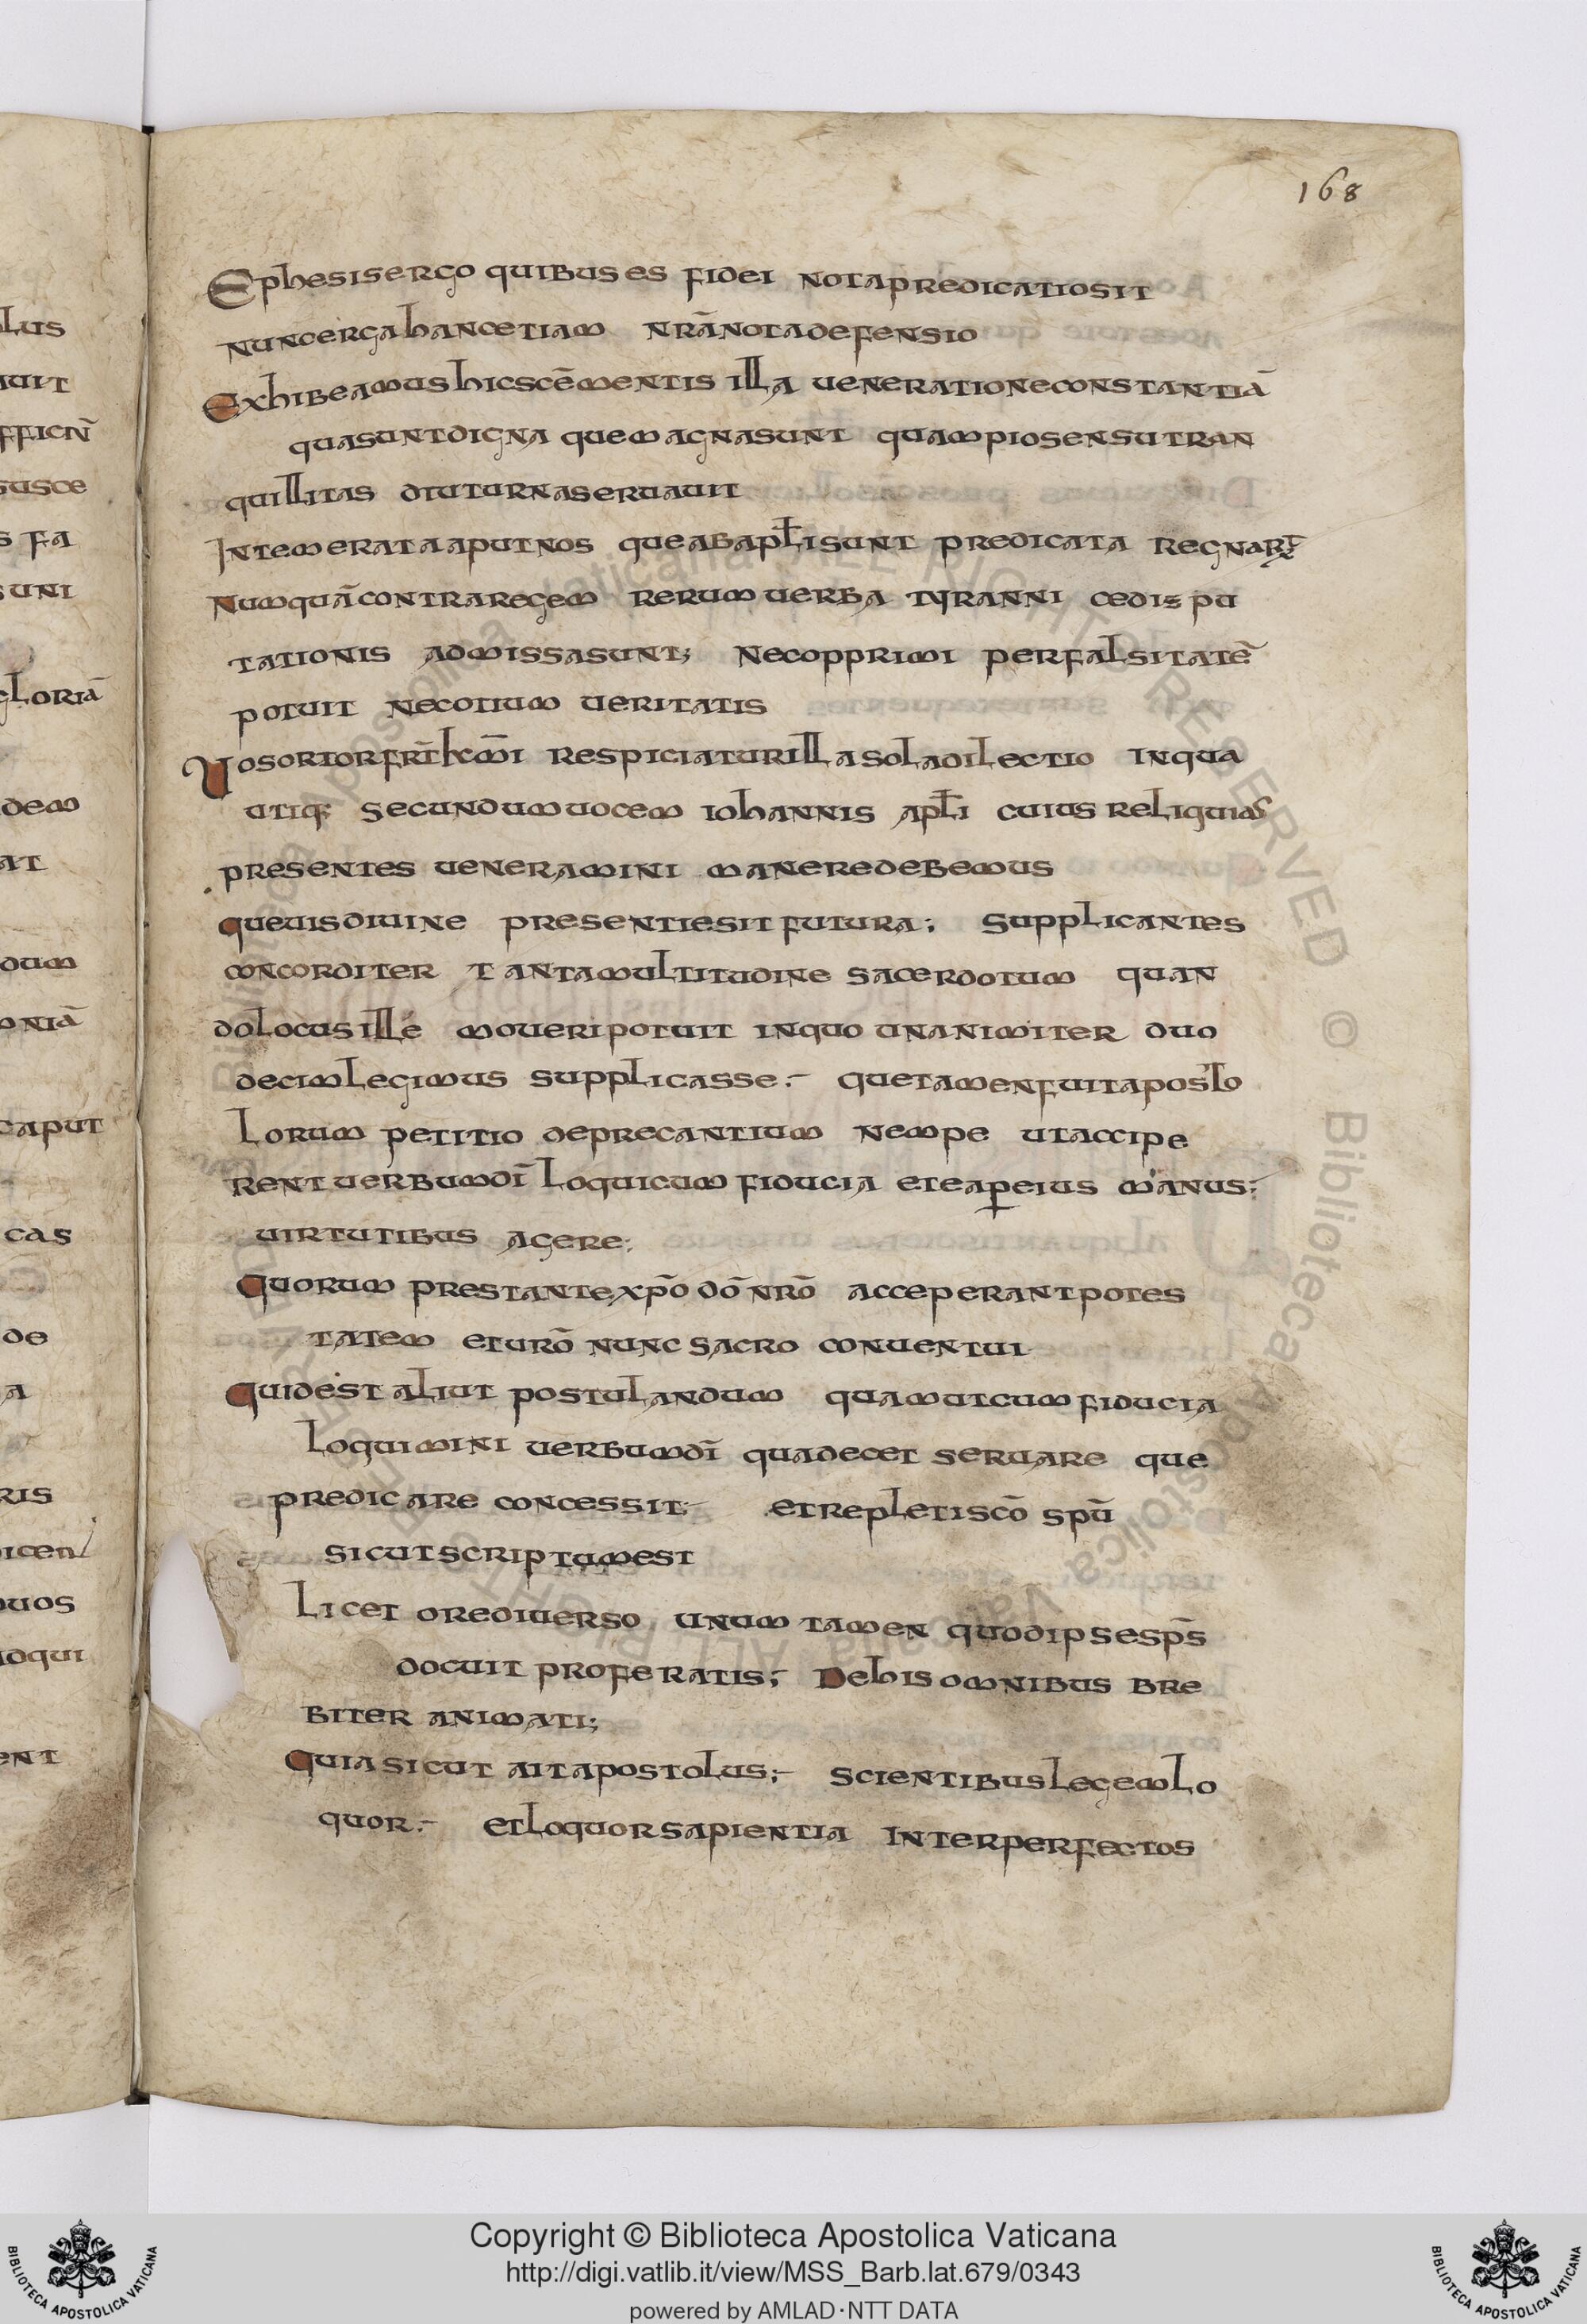 168
lus
uit
fficn̄
susce
s fa
suni
gloriā
dem
at
dum
oniā
caput
cas
de
a
ris
dicen
quos
oqui
ent
Ephesis ergo quibus es fidei nota predicatio sit
nunc erga hanc etiam nrā nota defensio
Exhibeamus hic scē mentis illa ueneratione constantiā
qua sunt digna que magna sunt quam pio sensu tran
quillitas diuturna seruauit
Intemerata aput nos que ab aptli sunt predicata regnar̄t
Numquā contra regem rerum uerba tyranni cedispu
tationis admissa sunt; Nec opprimi per falsitatē
potuit negotium ueritatis
Uos ortor frt kmi respiciatur illa sola dilectio in qua
utiq; secundum uocem iohannis aptli cuius reliquias
presentes ueneramini manere debemus
queuis diuine presentie sit futura; supplicantes
concorditer tanta multitudine sacerdotum quan
do locus ille moueri potuit in quo unanimiter duo
decim legimus supplicasse.- que tamen fuit aposto
lorum petitio deprecantium nempe ut accipe
rent uerbum dī loqui cum fiducia et ea per eius manus;
uirtutibus agere;
Quorum prestante xpō dō nrō acceperant potes
tatem et urō nunc sacro conuentui
Quid est aliut postulandum quam ut cum fiducia
loquimini uerbum dī qua decet seruare que
predicare concessit;- et repleti scō spū
sicut scriptum est
Licet ore diuerso unum tamen quod ipse sps̄
docuit proferatis;- De his omnibus bre
biter animati;
Quia sicut ait apostolus;- scientibus legem lo
quor.- et loquor sapientia inter perfectos
© Biblioteca Apostolica Vaticana ALL RIGHTS RESERVED
Copyright © Biblioteca Apostolica Vaticana
http://digi.vatlib.it/view/MSS_Barb.lat.679/0343
powered by AMLAD·NTT DATA
BIBLIOTECA APOSTOLICA VATICANA
BIBLIOTECA APOSTOLICA VATICANA